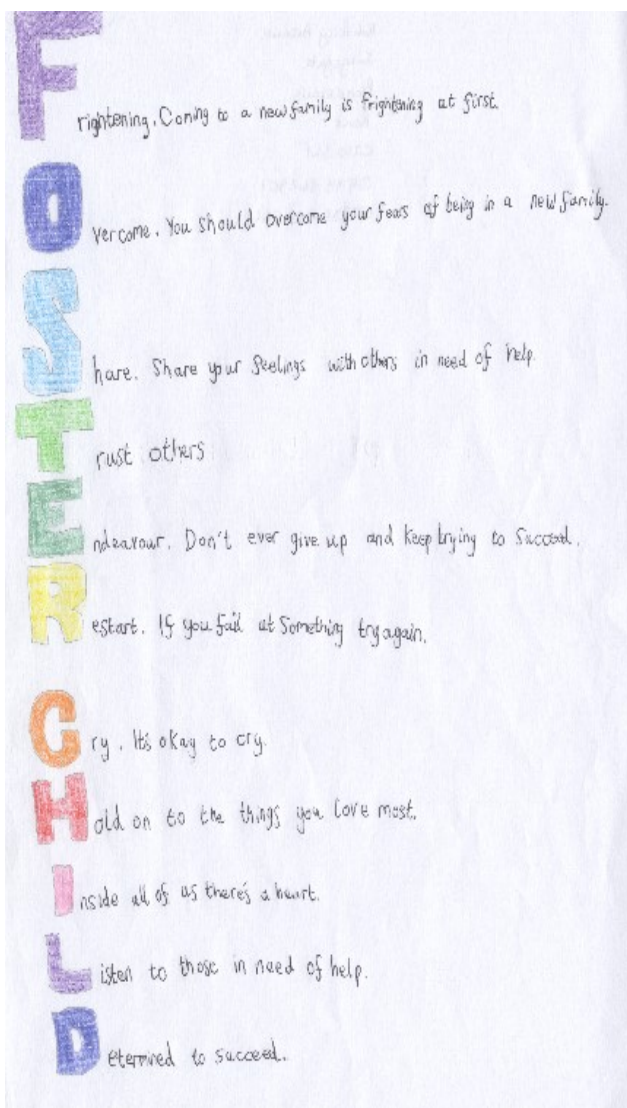 Frightening. Coming to a new family is frightening at first.
Overcome. You should overcome your fears of being in a new family.
Share. Share your feelings with others in need of help.
Trust others
Endeavour. Don't ever give up and keep trying to succeed.
Restart. If you fail at something try again.
Cry. It's okay to cry.
Hold on to the things you love most.
Inside all of us there's a heart.
Listen to those in need of help.
Determined to succeed.